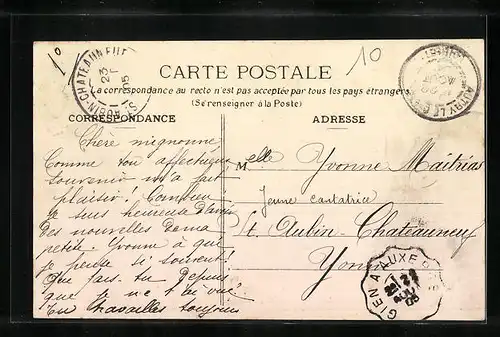 10
10
CARTE POSTALE
La correspondance au recto n'est pas acceptée par tous les pays étrangers
(Se renseigner à la Poste)
CORRESPONDANCE
ADRESSE
Chère mignonne,
Comme ton affectueux
souvenir m'a fait
plaisir! Combien
je suis heureuse d'avoir
des nouvelles de ma
petite Yvonne à qui
je pense si souvent!
Que fais-tu depuis
que je ne t'ai vue?
Tu travailles toujours
Melle Yvonne Maitrias
jeune cantatrice
St. Aubin-Chateauneuf
Yonne
ST AUBIN-CHATEAUNEUF
23
05
GIEN A AUXERRE
05